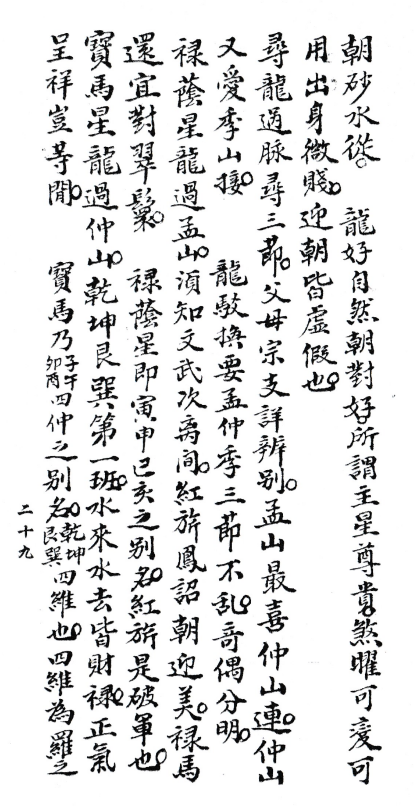 朝砂水從。龍好自然朝對好所謂主星尊貴煞曜可變可
用出身微賤。迎朝皆虛假也。
尋龍過脉尋三節。父母宗支詳辨别。孟山最喜仲山連。仲山
又愛季山接。龍駁換要孟仲季三節不乱。竒偶分明。
禄䕃星龍過孟山。須知文武次离间。紅旂鳳詔朝迎美。禄馬
還宜對翠鬟。禄䕃星即寅申巳亥之别名。紅旂是破軍也。
寶馬星龍過仲山。乾坤艮巽第一班。水來水去皆財禄。正氣
呈祥豈等閒。寶馬乃子午卯酉四仲之别名。乾坤艮巽四維也。四維為羅之
二十九